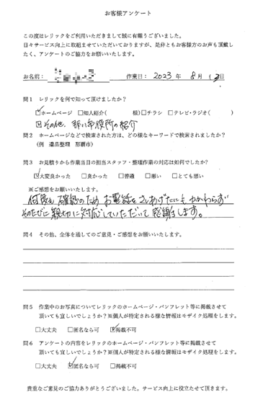 お客様アンケート
この度はレリックをご利用いただきまして誠に有難うございました。
日々サービス向上に取組ませていただいておりますが、是非ともお客様のお声を頂戴し
たく、アンケートのご協力をお願いいたします。
お名前: 作業日: 2023 年 8 月 1 日
問1 レリックを何で知って頂けましたか?
□ホームページ □知人紹介( 様) □チラシ □テレビ・ラジオ( )
☑その他、 市役所の紹介
問2 ホームページなどで検索された方は、どの様なキーワードで検索されましたか?
(例 遺品整理 那覇市)
問3 お見積りから作業当日の担当スタッフ・整理作業の対応は如何でしたか?
☑大変良かった □良かった □普通 □悪い □とても悪い
※ご感想をお願いいたします。
何度も確認のため お電話を さしあげたにもかかわらず
そのたびに親切に対応していただいて感謝します。
問4 その他、全体を通してのご意見・ご感想をお願いいたします。
問5 作業中のお写真についてレリックのホームページ・パンフレット等に掲載させて
頂いても宜しいでしょうか?※個人が特定される様な情報はモザイク処理をします。
□大丈夫 □匿名なら可 ☑掲載不可
問6 アンケートの内容をレリックのホームページ・パンフレット等に掲載させて
頂いても宜しいでしょうか?※個人が特定される様な情報はモザイク処理をします。
□大丈夫 ☑匿名なら可 □掲載不可
貴重なご意見のご協力ありがとうございました。サービス向上に役立たせて頂きます。